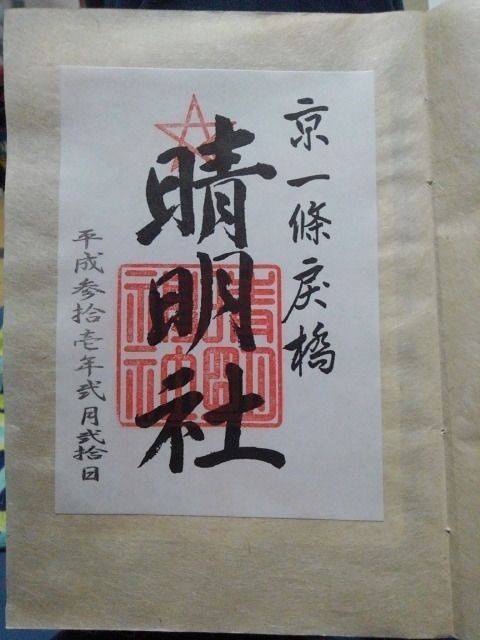 京一條戻橋
晴明社
平成参拾壱年弐月弐拾日